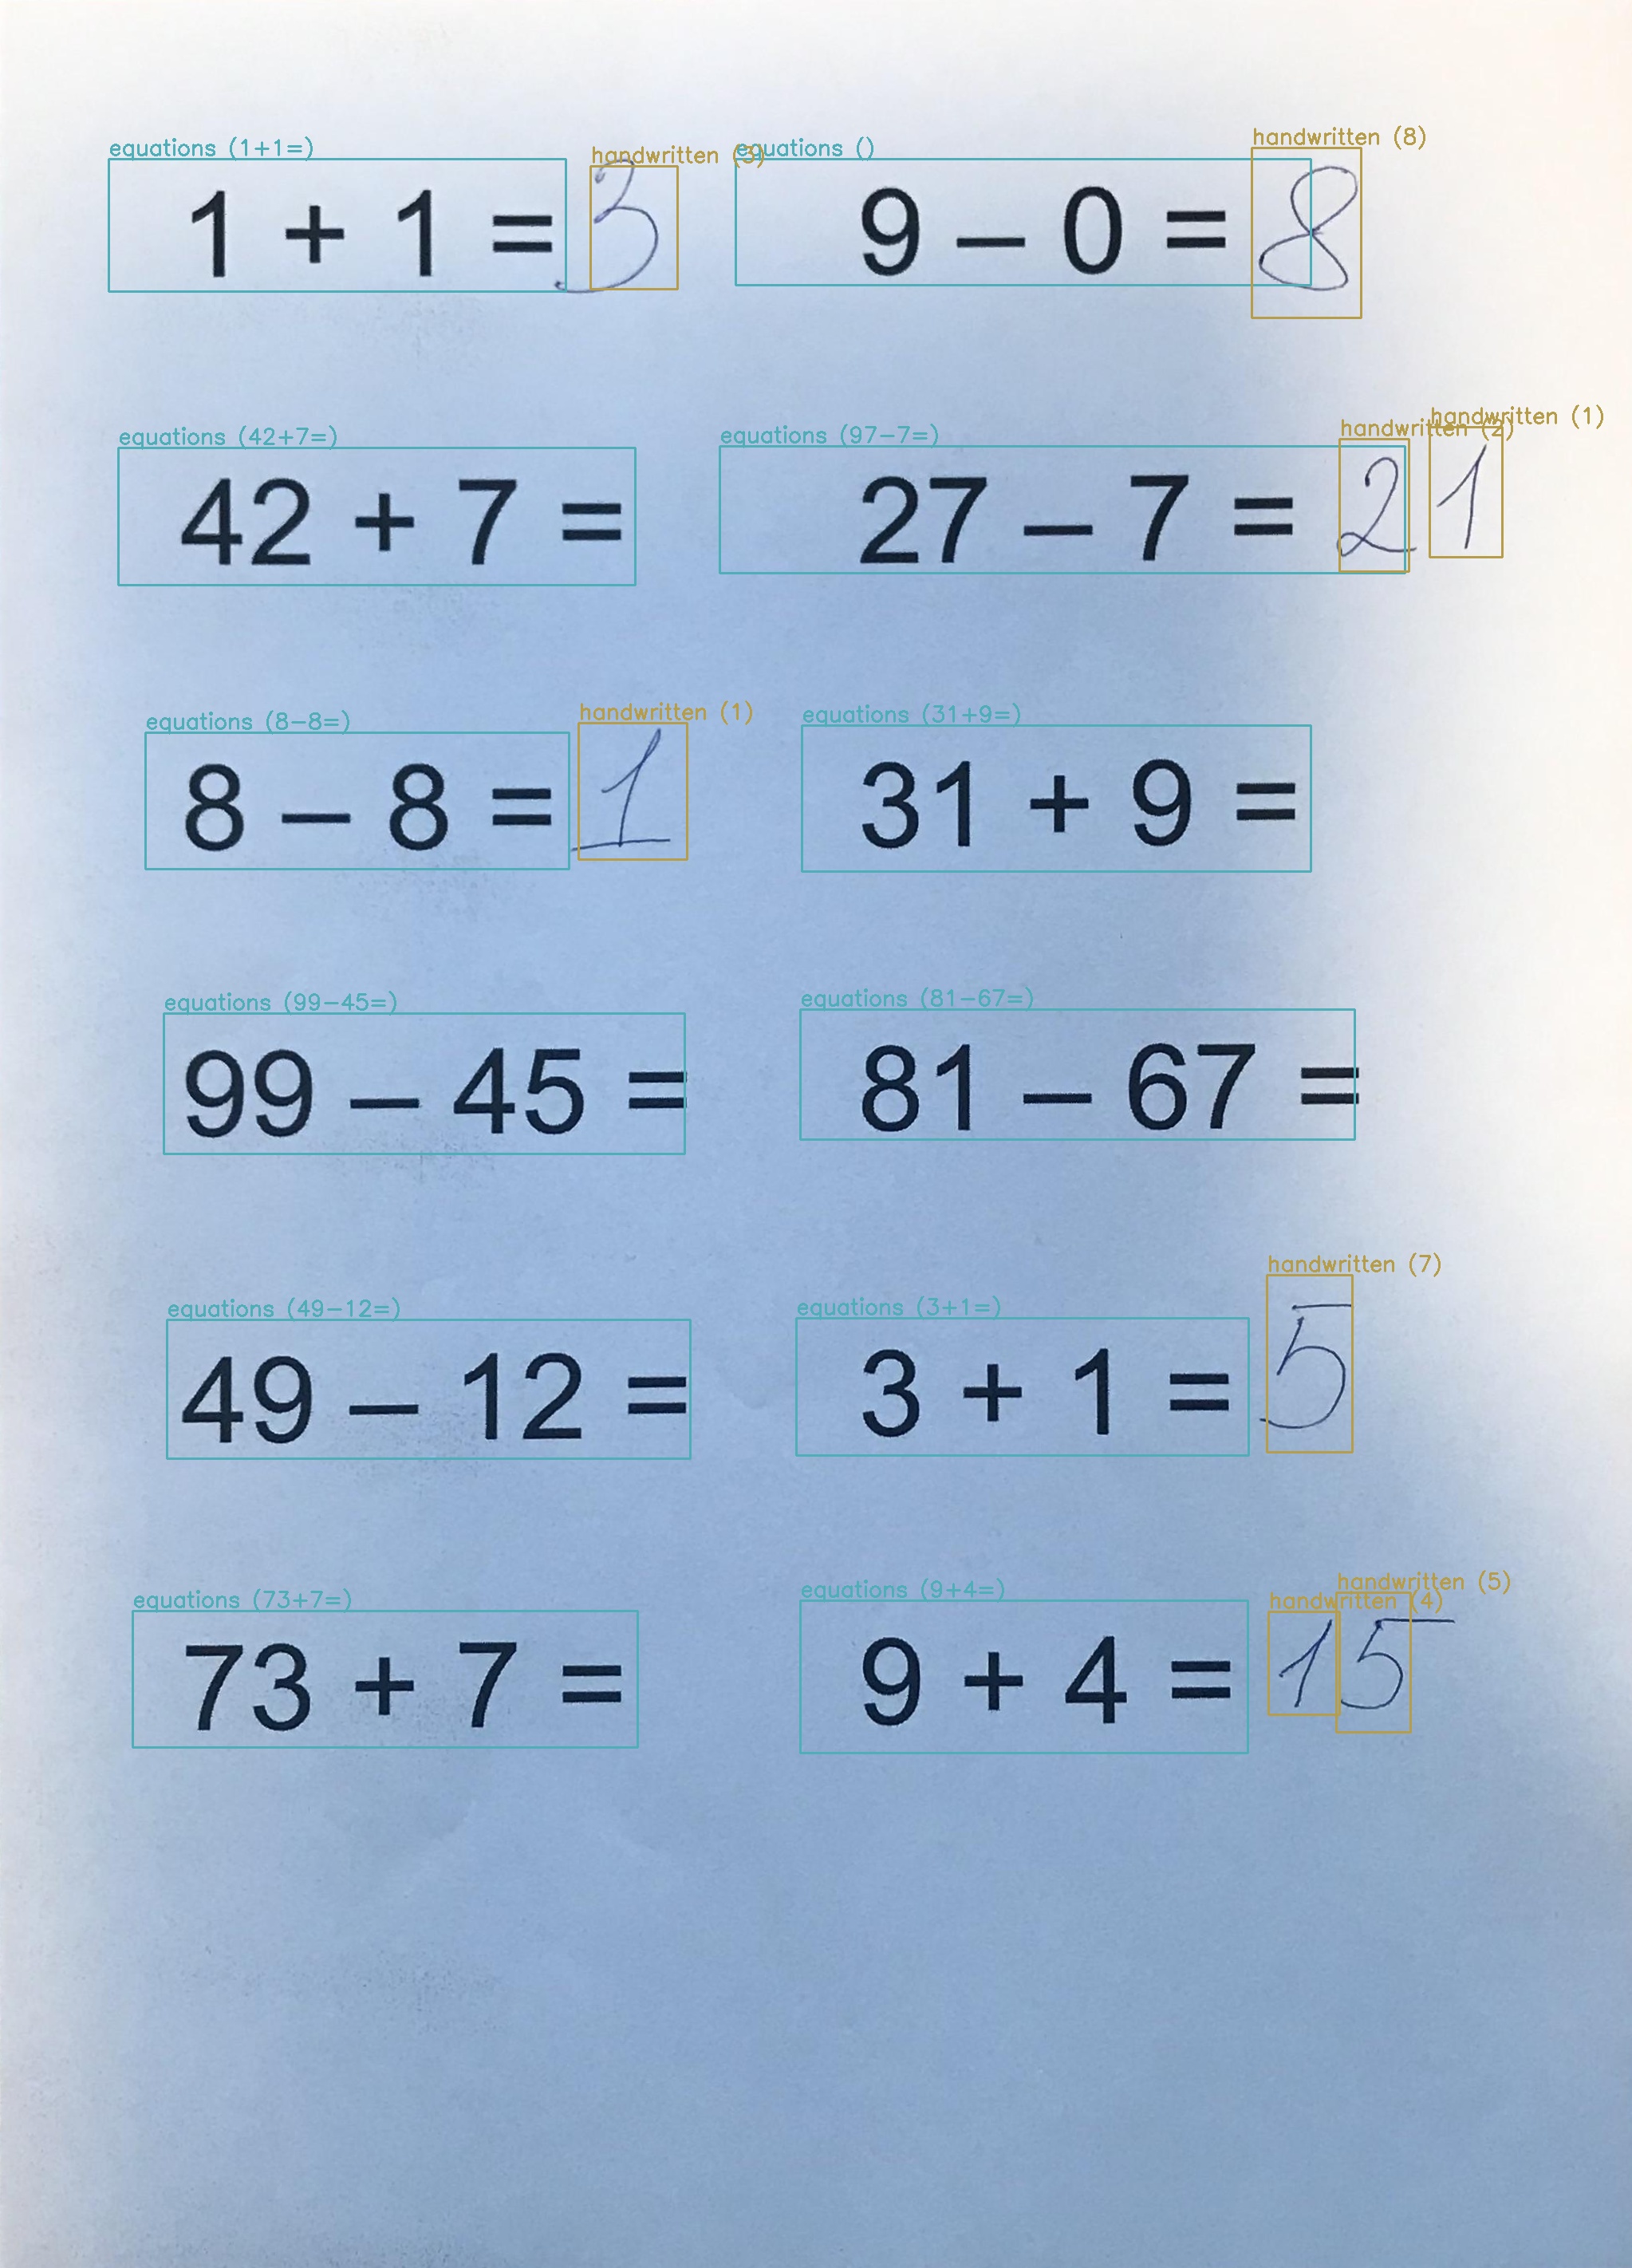 equations (1+1=) handwritten (3) equations () handwritten (8)
1 + 1 = 3 9 – 0 = 8
equations (42+7=) equations (97-7=) handwritten (2) handwritten (1)
42 + 7 = 27 – 7 = 21
equations (8-8=) handwritten (1) equations (31+9=)
8 – 8 = 1 31 + 9 =
equations (99-45=) equations (81-67=)
99 – 45 = 81 – 67 =
equations (49-12=) equations (3+1=) handwritten (7)
49 – 12 = 3 + 1 = 5
equations (73+7=) equations (9+4=) handwritten (4) handwritten (5)
73 + 7 = 9 + 4 = 15